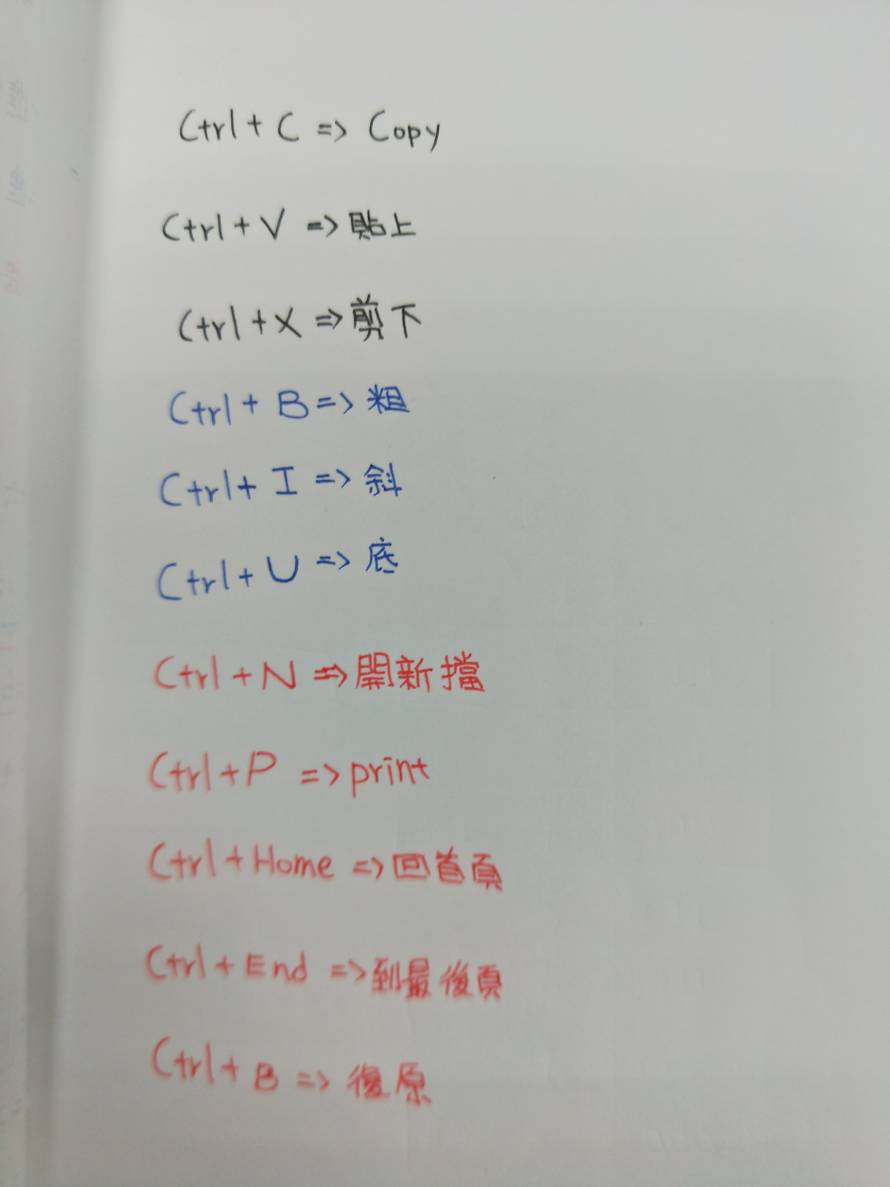 Ctrl + C => Copy
Ctrl + V => 貼上
Ctrl + X => 剪下
Ctrl + B => 粗
Ctrl + I => 斜
Ctrl + U => 底
Ctrl + N => 開新擋
Ctrl + P => print
Ctrl + Home => 回首頁
Ctrl + End => 到最後頁
Ctrl + B => 復原